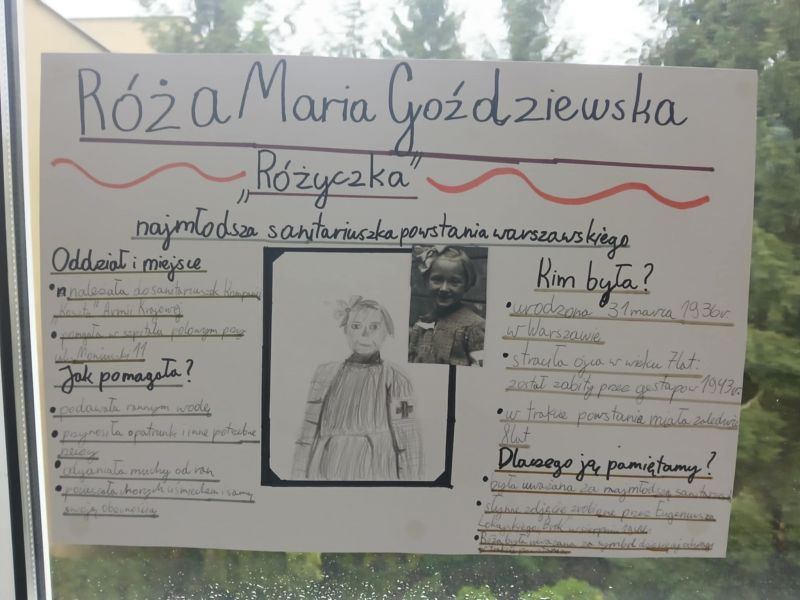 Róża Maria Goździewska
„Różyczka"
najmłodsza sanitariuszka powstania warszawskiego
Oddział i miejsce
• należała do sanitariuszek Kompanii
"Koszta" Armii Krajowej
• pomagała w szpitalu polowym przy
ul. Moniuszki 11
Jak pomagała?
• podawała rannym wodę
• przynosiła opatrunki i inne potrzebne
rzeczy
• odganiała muchy od ran
• pocieszała chorych uśmiechem i samą
swoją obecnością
Kim była?
• urodzona 31 marca 1936r.
w Warszawie
• straciła ojca w wieku 7 lat:
został zabity przez gestapo w 1943r.
• w trakcie powstania miała zaledwie
8 lat
Dlaczego ją pamiętamy?
• była uważana za najmłodszą
• słynne zdjęcie zrobione przez Eugeniusza
Lokajskiego w sierpniu
• Róża była uważana za symbol dziecięcej odwagi
w trakcie powstania